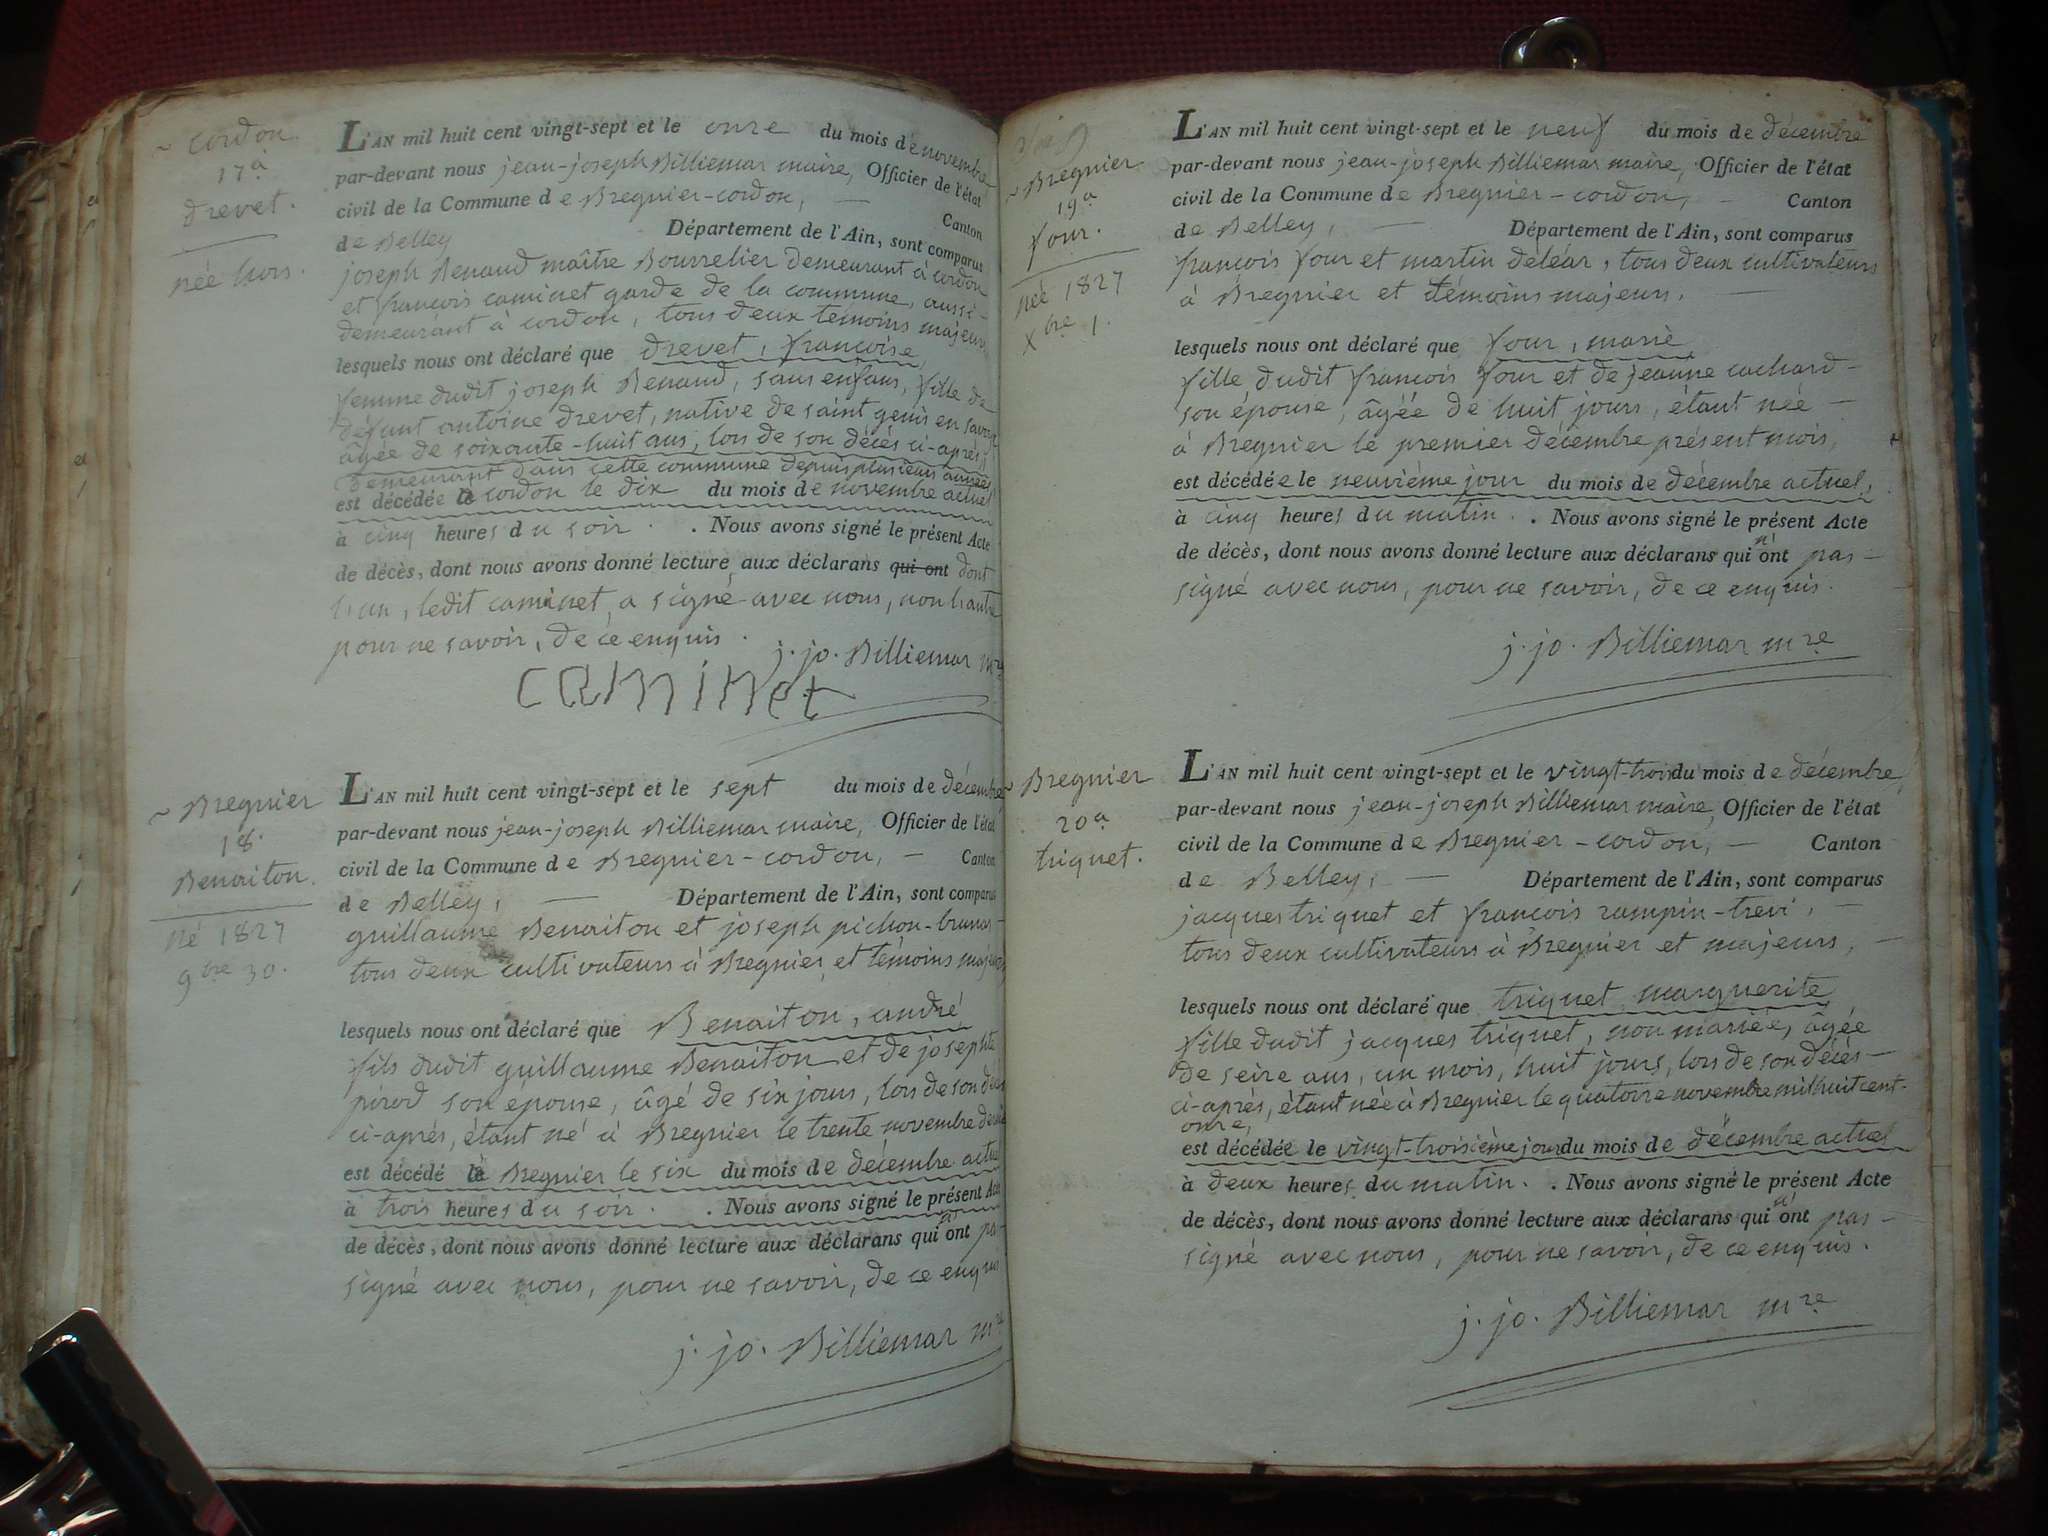 cordon
17a
drevet.
née hors.
L'AN mil huit cent vingt-sept et le onze du mois de novembre
par-devant nous jean-joseph Billiemar maire, Officier de l'état
civil de la Commune de Bregnier-cordon, Canton
de Belley Département de l'Ain, sont comparus
joseph Renaud maître Bourrelier demeurant à cordon
et françois caminet garde de la commune, aussi-
demeurant à cordon, tous deux témoins majeurs
lesquels nous ont déclaré que drevet, françoise,
femme dudit joseph Renaud, sans enfans, fille de
défunt antoine drevet, native de saint genis en savoye
âgée de soixante-huit ans, lors de son décès ci-après,
demeurant dans cette commune depuis plusieurs années
est décédée à cordon le dix du mois de novembre actuel
à cinq heures du soir. . Nous avons signé le présent Acte
de décès, dont nous avons donné lecture aux déclarans qui ont dont
l'un, ledit caminet, a signé avec nous, non l'autre
pour ne savoir, de ce enquis.
j. jo. Billiemar mre
caminet
Bregnier
18.
Benaiton.
né 1827
9bre 30.
L'AN mil huit cent vingt-sept et le sept du mois de décembre
par-devant nous jean-joseph Billiemar maire, Officier de l'état
civil de la Commune de Bregnier-cordon, — Canton
de Belley, — Département de l'Ain, sont comparus
guillaume Benaiton et joseph pichon-brunas-
tous deux cultivateurs à Bregnier et témoins majeurs
lesquels nous ont déclaré que Benaiton, andré
fils dudit guillaume Benaiton et de josephte
pirod son épouse, âgé de six jours, lors de son décès
ci-après, étant né à Bregnier le trente novembre dernier
est décédé à Bregnier le six du mois de décembre actuel
à trois heures du soir. . Nous avons signé le présent Acte
de décès, dont nous avons donné lecture aux déclarans qui n'ont pas
signé avec nous, pour ne savoir, de ce enquis
j. jo. Billiemar mre
Bregnier
19a
four.
née 1827
Xbre 1.
L'AN mil huit cent vingt-sept et le neuf du mois de décembre
par-devant nous jean-joseph Billiemar maire, Officier de l'état
civil de la Commune de Bregnier-cordon, — Canton
de Belley, — Département de l'Ain, sont comparus
françois four et martin deléar, tous deux cultivateurs
à Bregnier et témoins majeurs.
lesquels nous ont déclaré que four, marie
fille dudit françois four et de jeanne cachard-
son épouse, âgée de huit jours, étant née —
à Bregnier le premier décembre présent mois,
est décédée le neuvième jour du mois de décembre actuel,
à cinq heures du matin. . Nous avons signé le présent Acte
de décès, dont nous avons donné lecture aux déclarans qui n'ont pas-
signé avec nous, pour ne savoir, de ce enquis.
j. jo. Billiemar mre
Bregnier
20a
triquet.
L'AN mil huit cent vingt-sept et le vingt-trois du mois de décembre,
par-devant nous jean-joseph Billiemar maire, Officier de l'état
civil de la Commune de Bregnier-cordon, — Canton
de Belley, — Département de l'Ain, sont comparus
jacques triquet et françois rampin-trevi, —
tous deux cultivateurs à Bregnier et majeurs, —
lesquels nous ont déclaré que triquet, marguerite
fille dudit jacques triquet, non mariée, âgée
de seize ans, un mois, huit jours, lors de son décès —
ci-après, étant née à Bregnier le quatorze novembre mil huit cent-
onze,
est décédée le vingt-troisième jour du mois de décembre actuel
à deux heures du matin. . Nous avons signé le présent Acte
de décès, dont nous avons donné lecture aux déclarans qui n'ont pas-
signé avec nous, pour ne savoir, de ce enquis.
j. jo. Billiemar mre